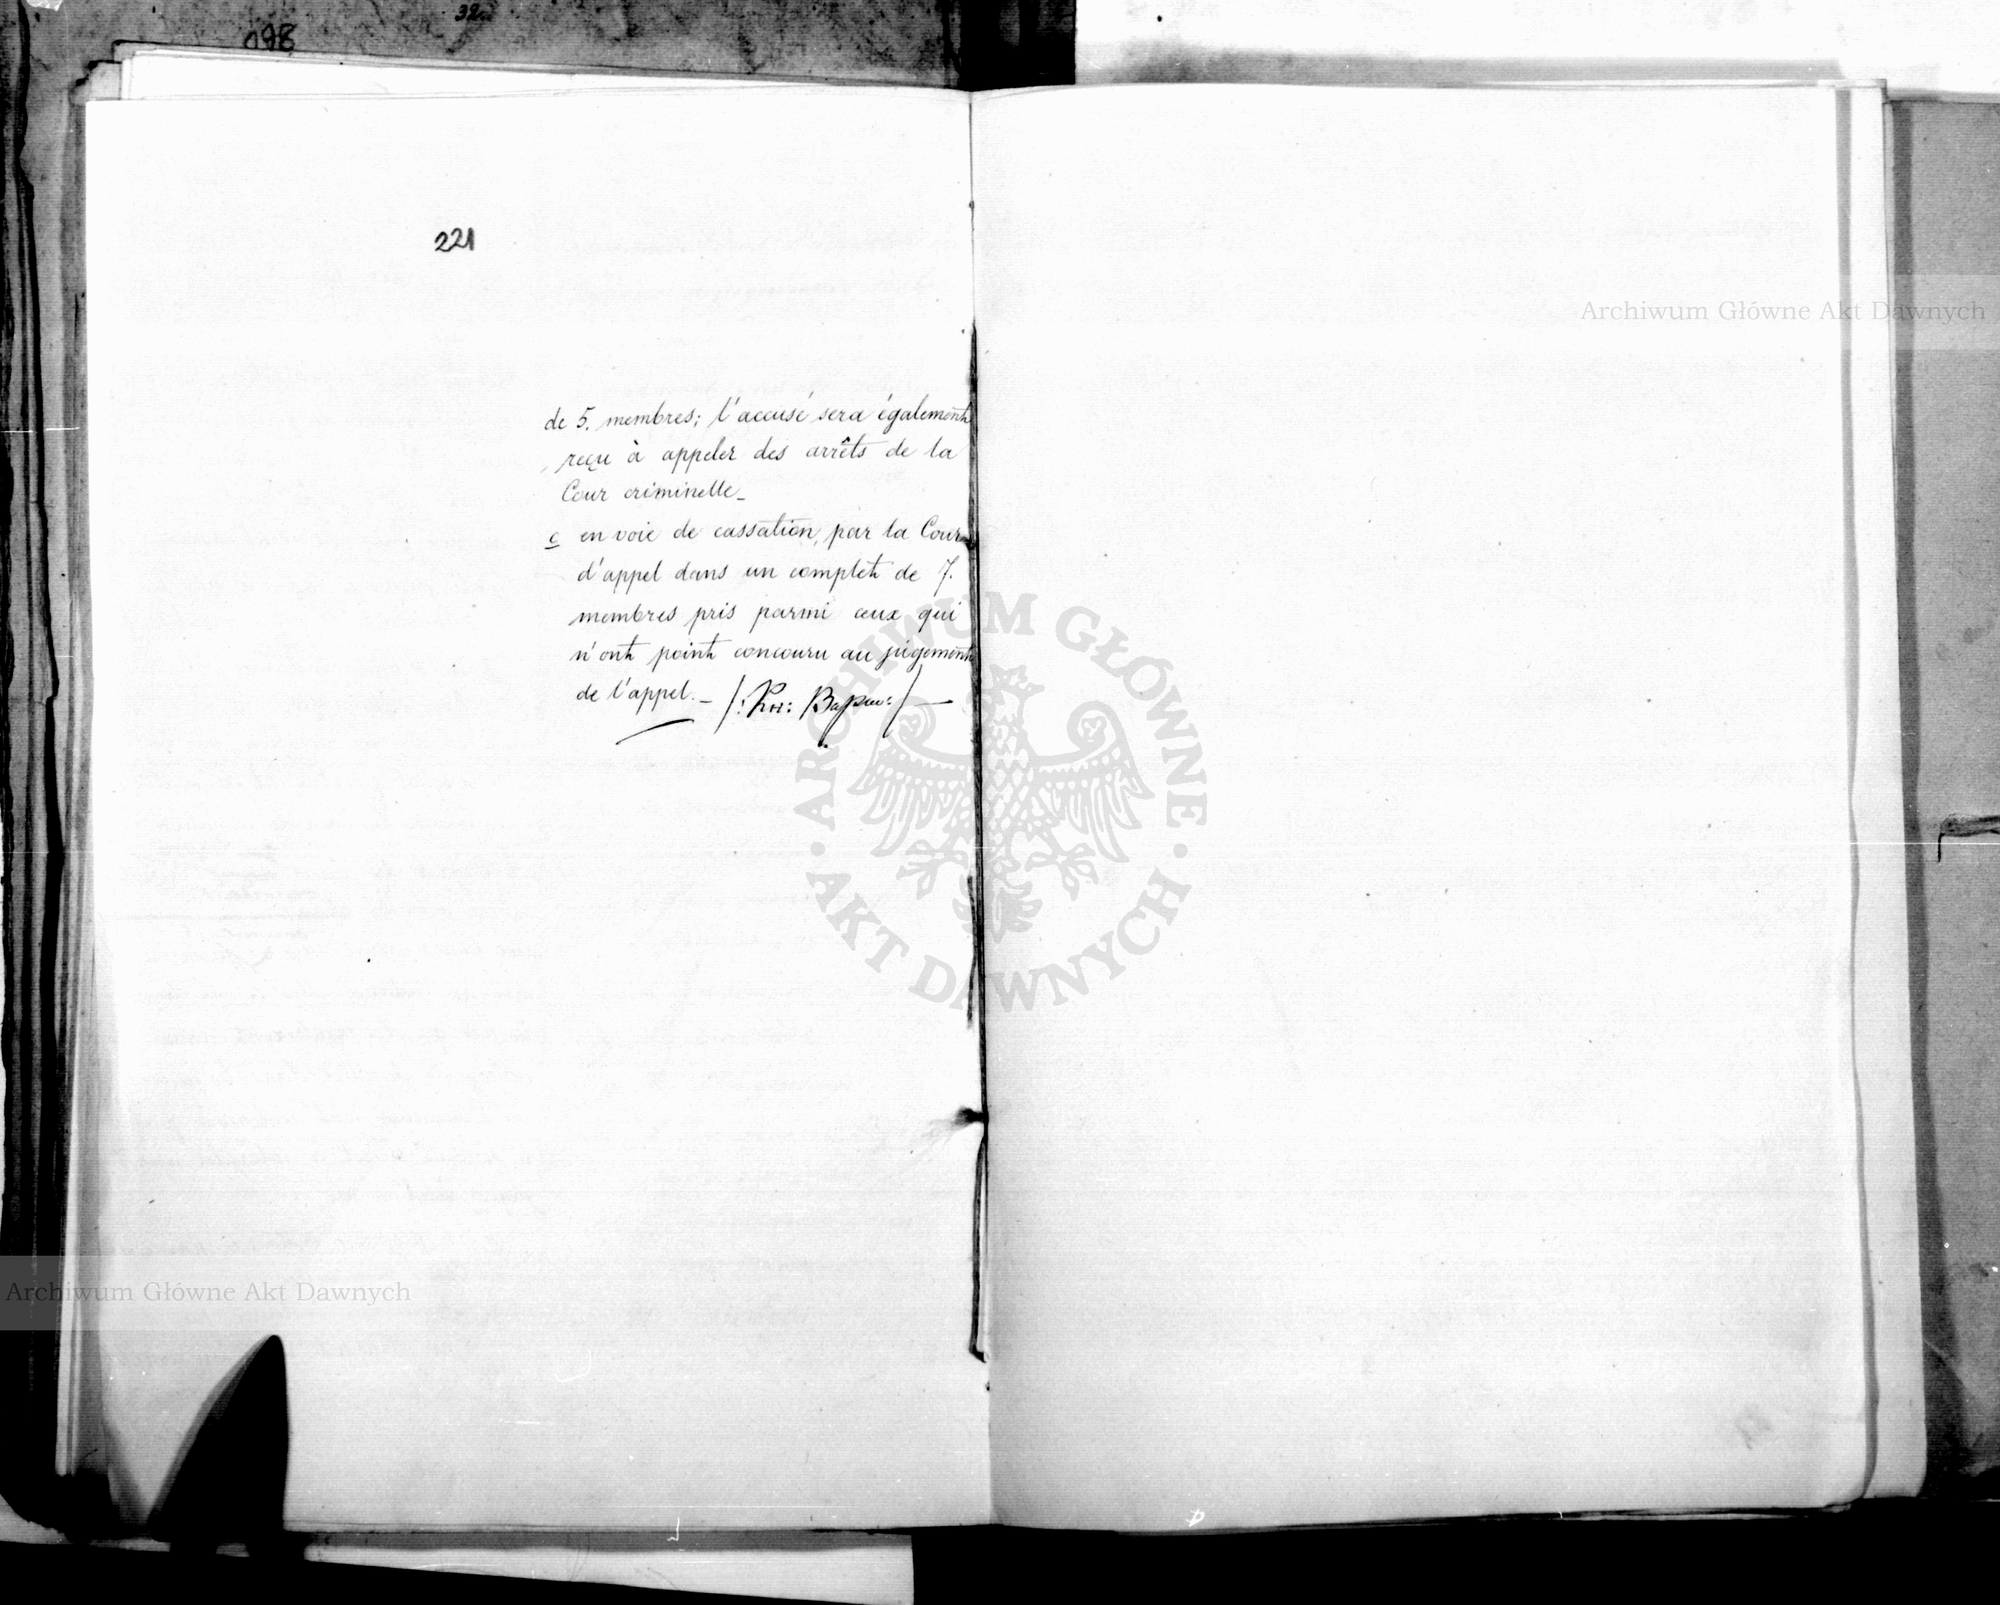 32.
098
221
de 5. membres; l'accusé sera également
reçu à appeler des arrêts de la
Cour criminelle_
c en voie de cassation, par la Cour
d'appel dans un complet de 7.
membres pris parmi ceux qui
n'ont point concouru au jugement
de l'appel._
Archiwum Główne Akt Dawnych
ARCHIWUM GŁÓWNE AKT DAWNYCH
Archiwum Główne Akt Dawnych